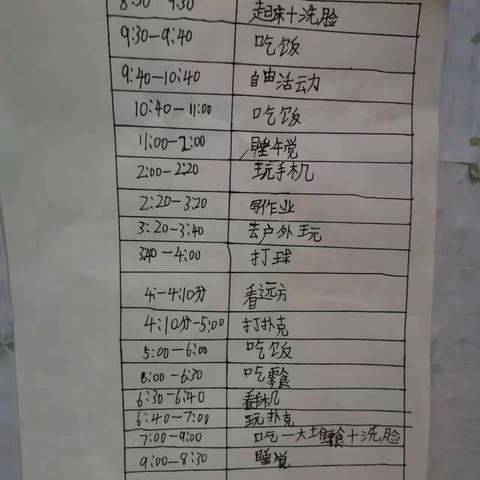 8:30-9:30 起床+洗脸
9:30-9:40 吃饭
9:40-10:40 自由活动
10:40-11:00 吃饭
11:00-2:00 睡午觉
2:00-2:20 玩手机
2:20-3:20 写作业
3:20-3:40 去户外玩
3:40-4:00 打球
4:-4:10分 看远方
4:10分-5:00 打扑克
5:00-6:00 吃饭
6:00-6:30 吃零食
6:30-6:40 看手机
6:40-7:00 玩扑克
7:00-9:00 吃一大堆零食+洗脸
9:00-8:30 睡觉